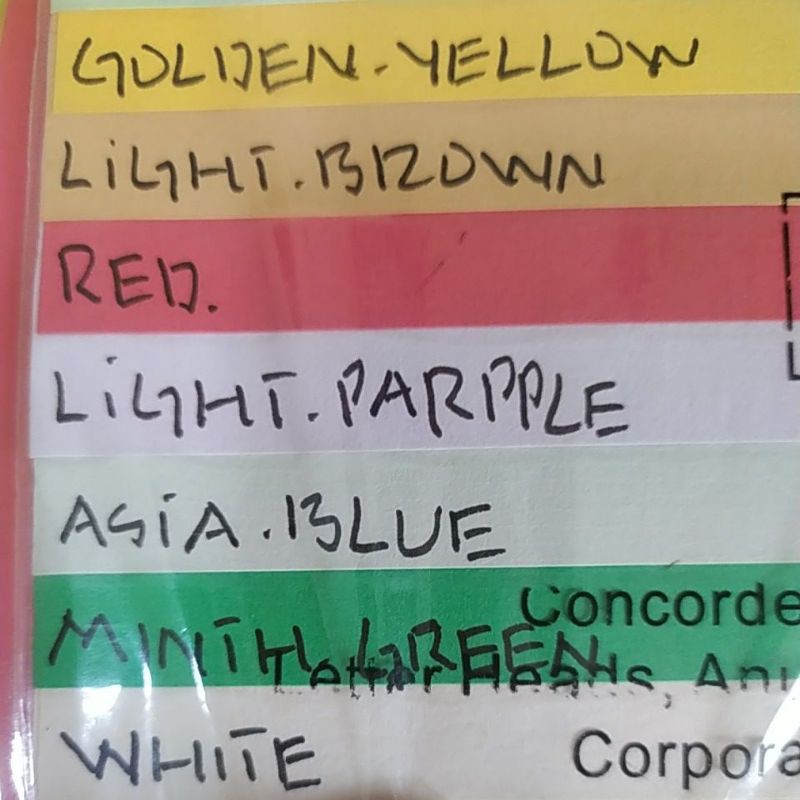 GOLDEN-YELLOW
LiGHT.BROWN
RED.
LiGHT.PARPPLE
ASiA.BLUE
Concorde
MINTH.GREEN
Letter Heads, An
WHITE
Corpora